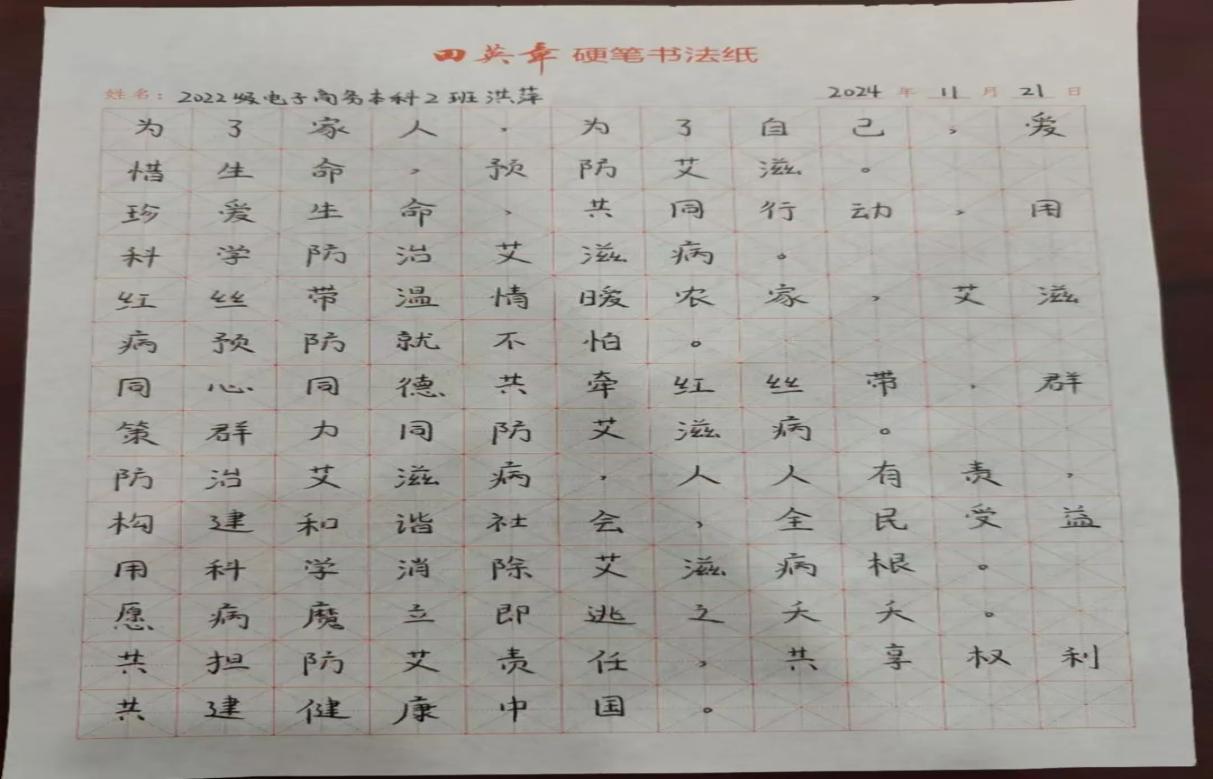 田英章硬笔书法纸
姓名：2022级电子商务本科2班洪萍 2024年11月21日
为了家人，为了自己，爱
惜生命，预防艾滋。
珍爱生命，共同行动，用
科学防治艾滋病。
红丝带温情暖农家，艾滋
病预防就不怕。
同心同德共牵红丝带，群
策群力同防艾滋病。
防治艾滋病，人人有责，
构建和谐社会，全民受益
用科学消除艾滋病根。
愿病魔立即逃之夭夭。
共担防艾责任，共享权利
共建健康中国。